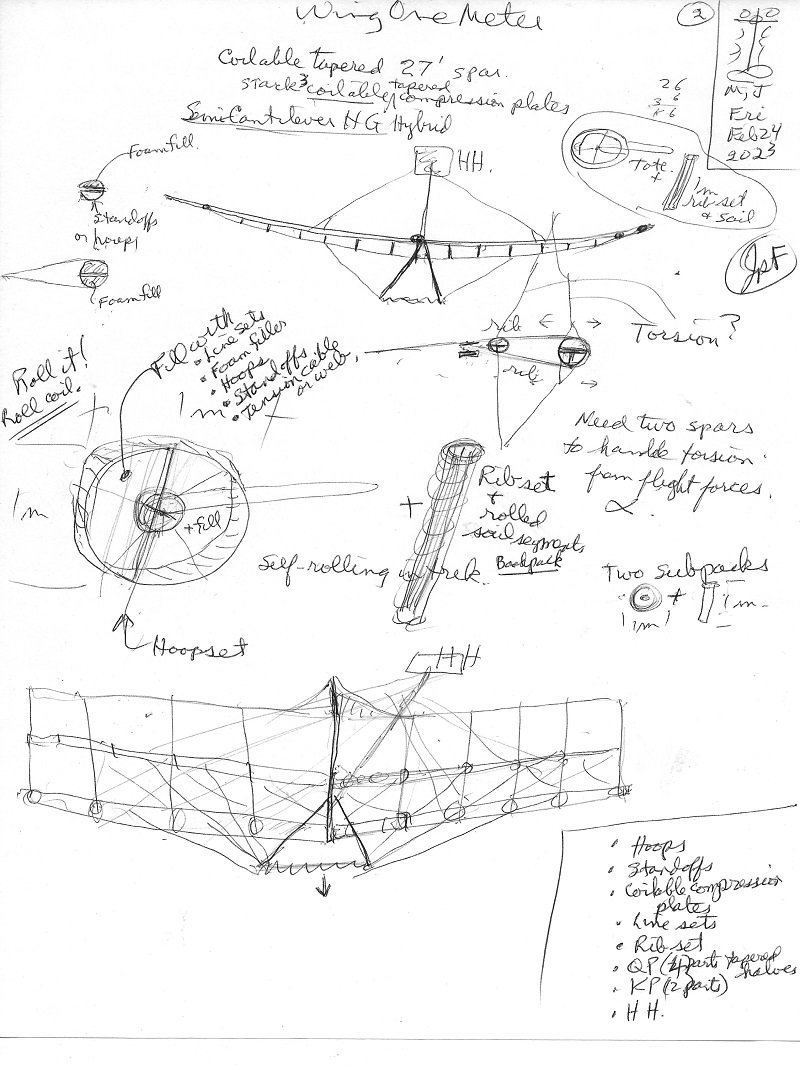 Wing One Meter
2
Coilable tapered 27' spar.
Stack 3 coilable tapered compression plates
SemiCantilever HG Hybrid
M, J
Fri
Feb 24
2023
26
Tote.
+
1m
rib set
& sail
JpF
Foam fill.
Standoffs
or hoops
Foam fill
HH.
Torsion?
rib
rib
Roll it!
Roll coil.
Fill with
• Line sets
• Foam filler
• Hoops
• Standoffs
• Tension cable
or web.
1m
Need two spars
to handle torsion
from flight forces.
1m
+ fill
+
Rib set
+
rolled
sail segments
Backpack
Self-rolling in trek.
Two subpacks
+
1m
1m
Hoopset
HH
• Hoops
• Standoffs
• Coilable compression
plates
• Line sets
• Rib set
• QP (4) parts tapered
halves
• KP (2 parts)
• HH.